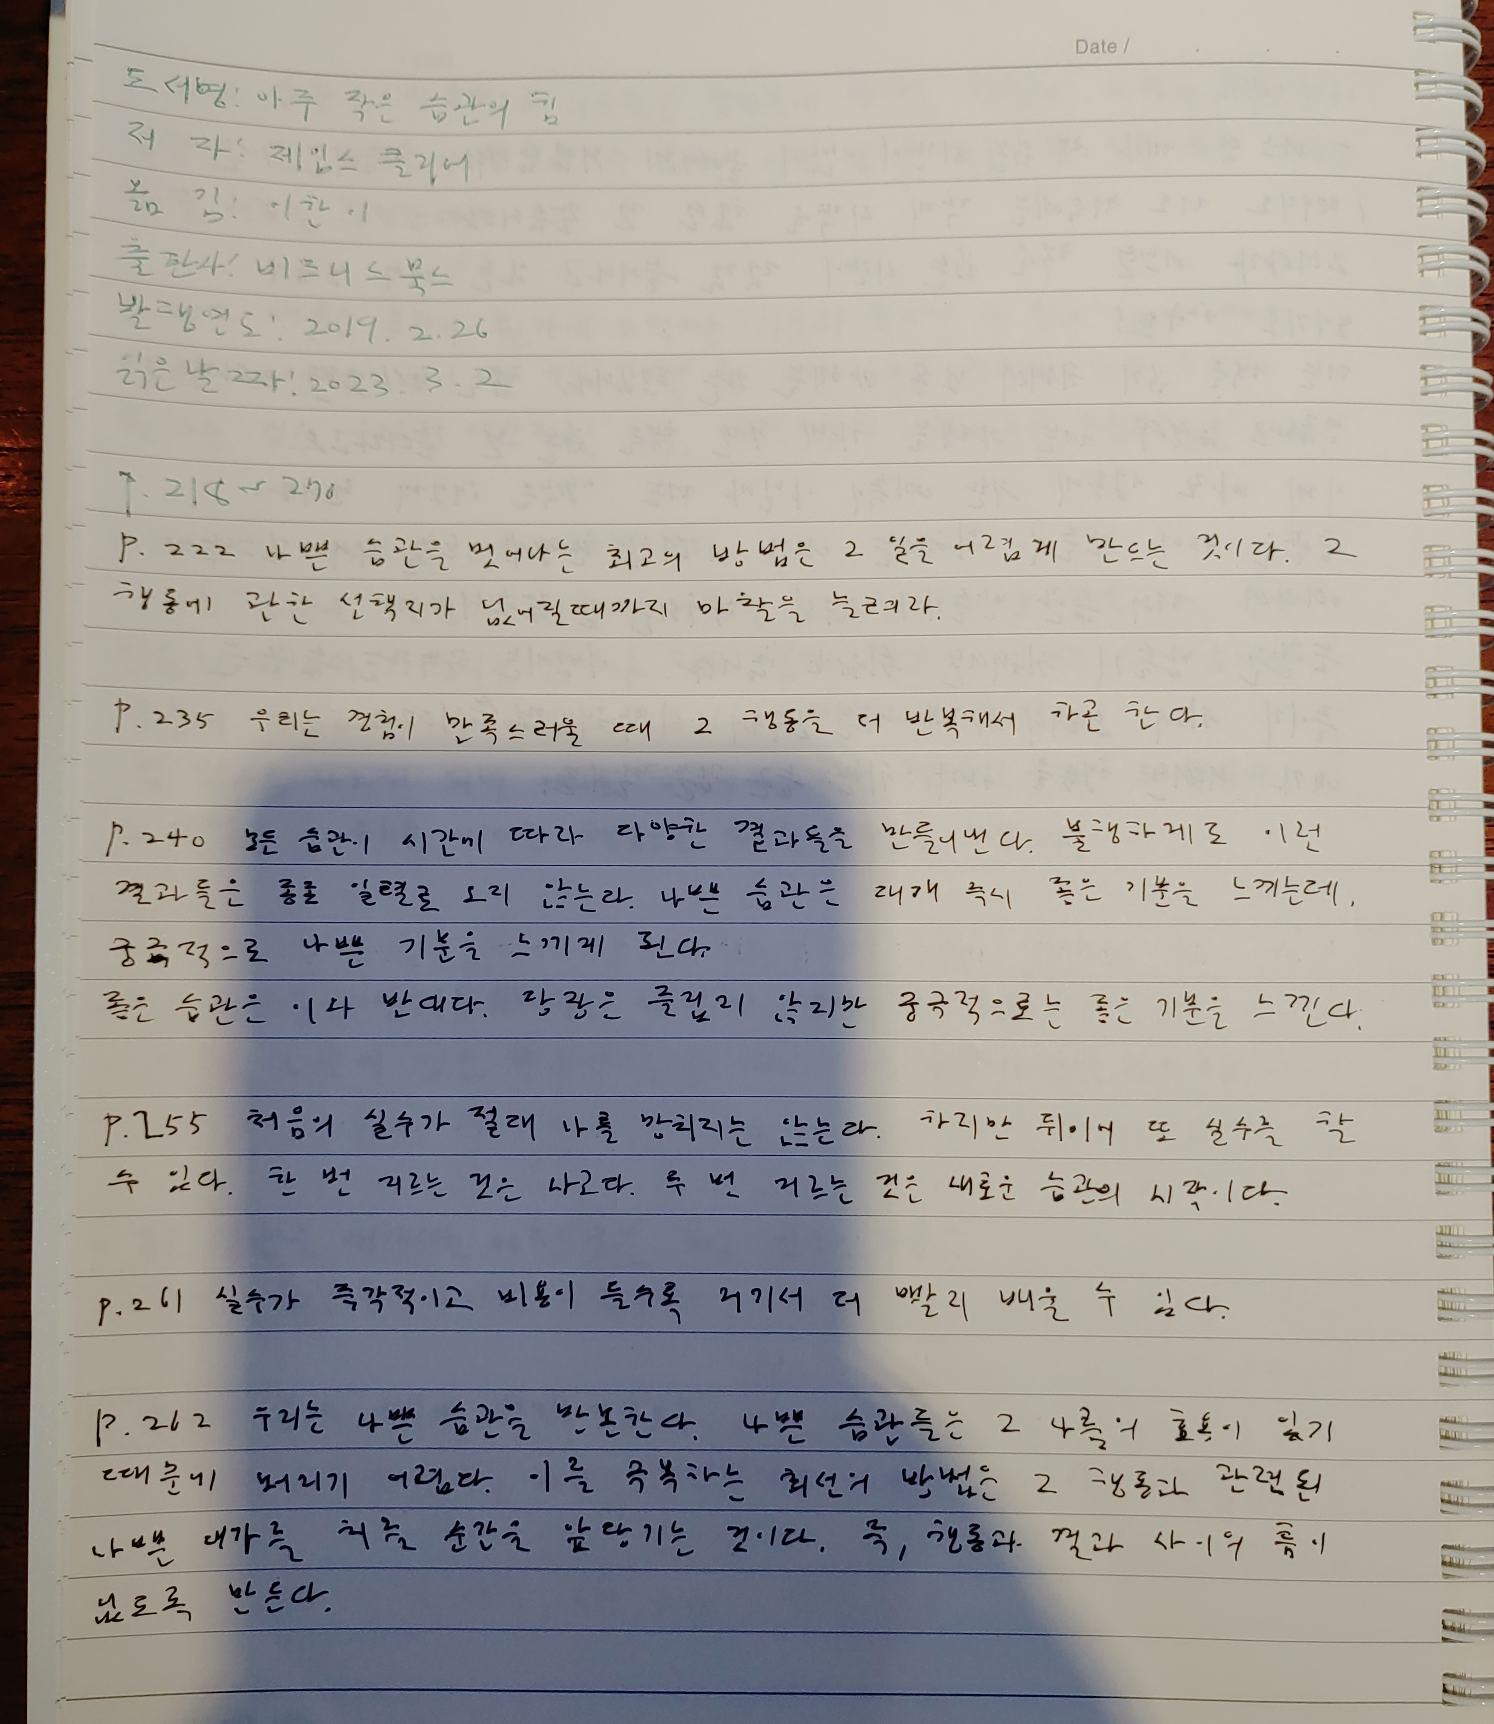 Date /
도서명: 아주 작은 습관의 힘
저 자: 제임스 클리어
옮 김: 이한이
출판사: 비즈니스북스
발행연도: 2019. 2. 26
읽은날짜: 2023. 3. 2
p. 218 ~ 270
p. 222 나쁜 습관을 벗어나는 최고의 방법은 그 일을 어렵게 만드는 것이다. 그
행동에 관한 선택지가 없어질때까지 마찰을 늘려라.
p. 235 우리는 경험이 만족스러울 때 그 행동을 더 반복해서 하곤 한다.
p. 240 모든 습관이 시간에 따라 다양한 결과들을 만들어낸다. 불행하게도 이런
결과들은 종종 일렬로 오지 않는다. 나쁜 습관은 대개 즉시 좋은 기분을 느끼는데,
궁극적으로 나쁜 기분을 느끼게 된다.
좋은 습관은 이와 반대다. 당장은 즐겁지 않지만 궁극적으로는 좋은 기분을 느낀다.
p. 255 처음의 실수가 절대 나를 망치지는 않는다. 하지만 뒤이어 또 실수를 할
수 있다. 한 번 거르는 것은 사고다. 두 번 거르는 것은 새로운 습관의 시작이다.
p. 261 실수가 즉각적이고 비용이 들수록 거기서 더 빨리 배울 수 있다.
p. 262 우리는 나쁜 습관을 반복한다. 나쁜 습관들은 그 나름의 효용이 있기
때문에 버리기 어렵다. 이를 극복하는 최선의 방법은 그 행동과 관련된
나쁜 대가를 치를 순간을 앞당기는 것이다. 즉, 행동과 결과 사이의 틈이
없도록 만든다.